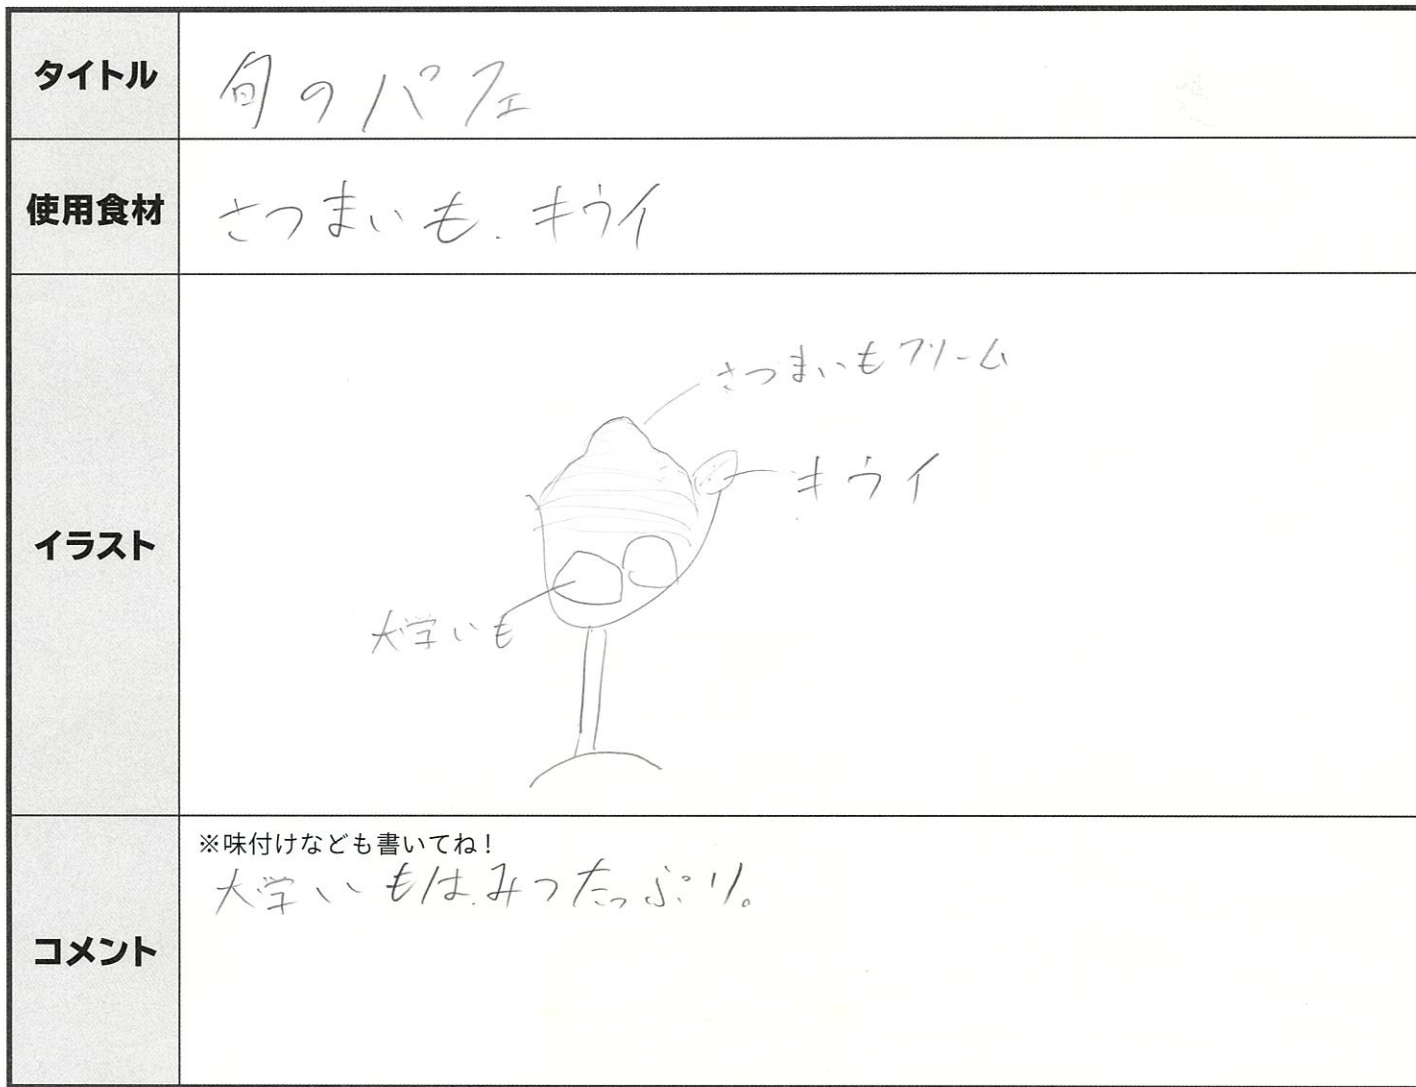 タイトル
旬のパフェ
使用食材
さつまいも、キウイ
イラスト
さつまいもクリーム
キウイ
大学いも
コメント
※味付けなども書いてね!
大学いもは、みつたっぷり。